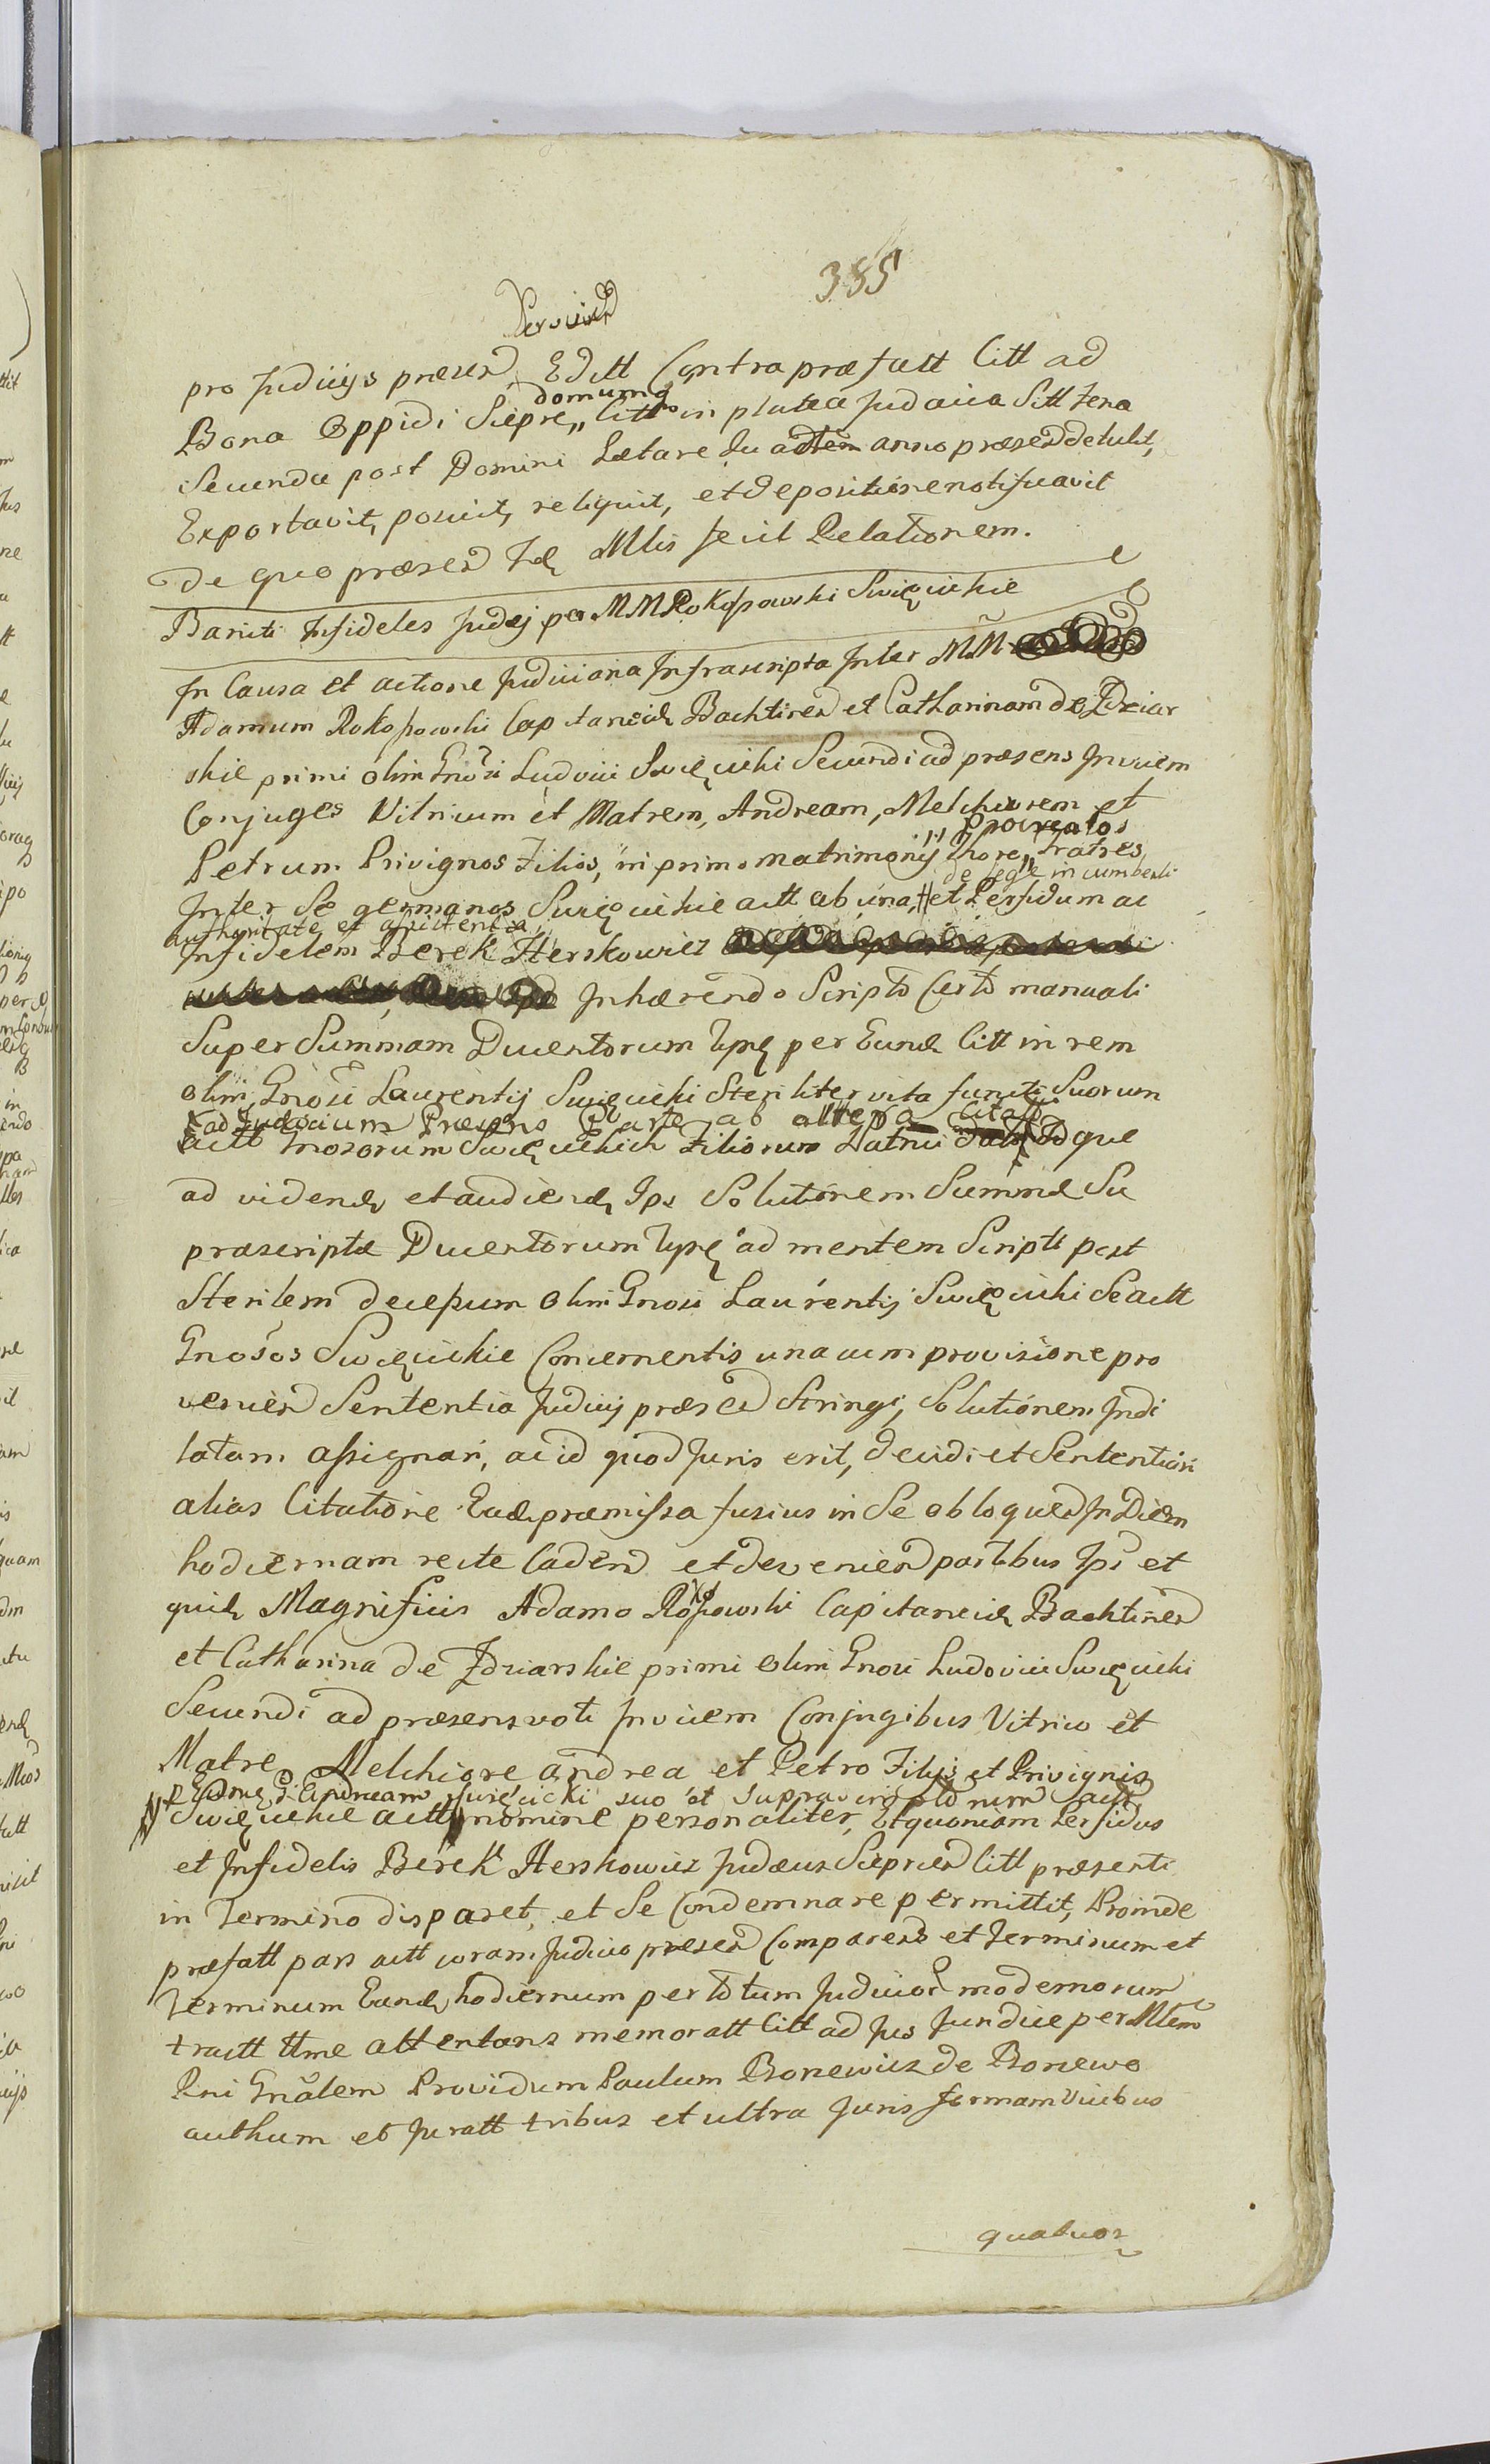 385
pro Judiciis præsen Editt Contra præfatt Citt ad
domumq
Bona Oppidi Siepre Citt in platea Judaica Sitt Feria
Secunda post Domini Lætare anno præsen detulit,
Exportavit, posuit, reliquit, et depositione notificavit
de quo præsen Mlis fecit Relationem.
Baniti Infideles Judej per MM Rokossowski Swięcickie
In Causa et actione Judiciaria Infrascripta Inter MM
Adamum Rokossowski Capitaneid Bachtinen et Catharinam de Zdziar
skie primi olim Gnosi Ludovici Swięcicki Secundi ad præsens Invicem
Conjuges Vitricum et Matrem, Andream, Melchiorem et
procreatos
Petrum Privignos Filios, in primo matrimonij thoro Fratres
de lege incumbenti
Inter Se germanos Swięcickie actt ab una, et Perfidum ac
authoritate et assistentia
Infidelem Berek Herskowicz
Inhærendo Scripto Certo manuali
Super Summam Ducentorum per Eund Citt in rem
olim Gnosi Laurentij Swięcicki Steriliter vita functi Suorum
ad Judicium Præsens Parte ab altera Citato
actt Gnosorum Swięcickich Filiorum Patrui que
ad vidend et audiend Ips Solutionem Summæ Su
præscriptæ Ducentorum ad mentem Scripti post
Sterilem decessum olim Gnosi Laurentij Swięcicki Se actt
Gnosos Swięcickie Concernentis una cum provisione pro
venien Sententia Judicij præsen Stringi, Solutionem Indi
latam assignari, ac id quod Juris erit, decidi et Sententiari
alias Citatione Ead præmissa fusius in Se obloquen In Diem
hodiernam recte Caden et devenien partibus Ips et
quid Magnificis Adamo Rokossowski Capitaneid Bachtinen
et Catharina de Zdziarskie primi olim Gnosi Ludovici Swięcicki
Secundi ad præsens voti Invicem Conjugibus Vitrico et
Matre, Melchiore Andrea et Petro Filijs et Privignis
Andream Swięcicki suo et suprascriptorum
Swięcickie actt nomine personaliter, Et quoniam Perfidus
et Infidelis Berek Herskowicz Judæus Sieprcen Citt præsenti
in Termino disparet, et Se Condemnare permittit, Proinde
præfatt pars actt coram Judicio præsen Comparens et Terminum et
Terminum Eund hodiernum per totum Judicior modernorum
tractt ttme attentans memoratt Citt ad Jus Juridice per Mlem
Rni Gnãlem Providum Paulum Bonewicz de Bonewo
authum et Juratt tribus et ultra Juris formam Vicibus
quatuor